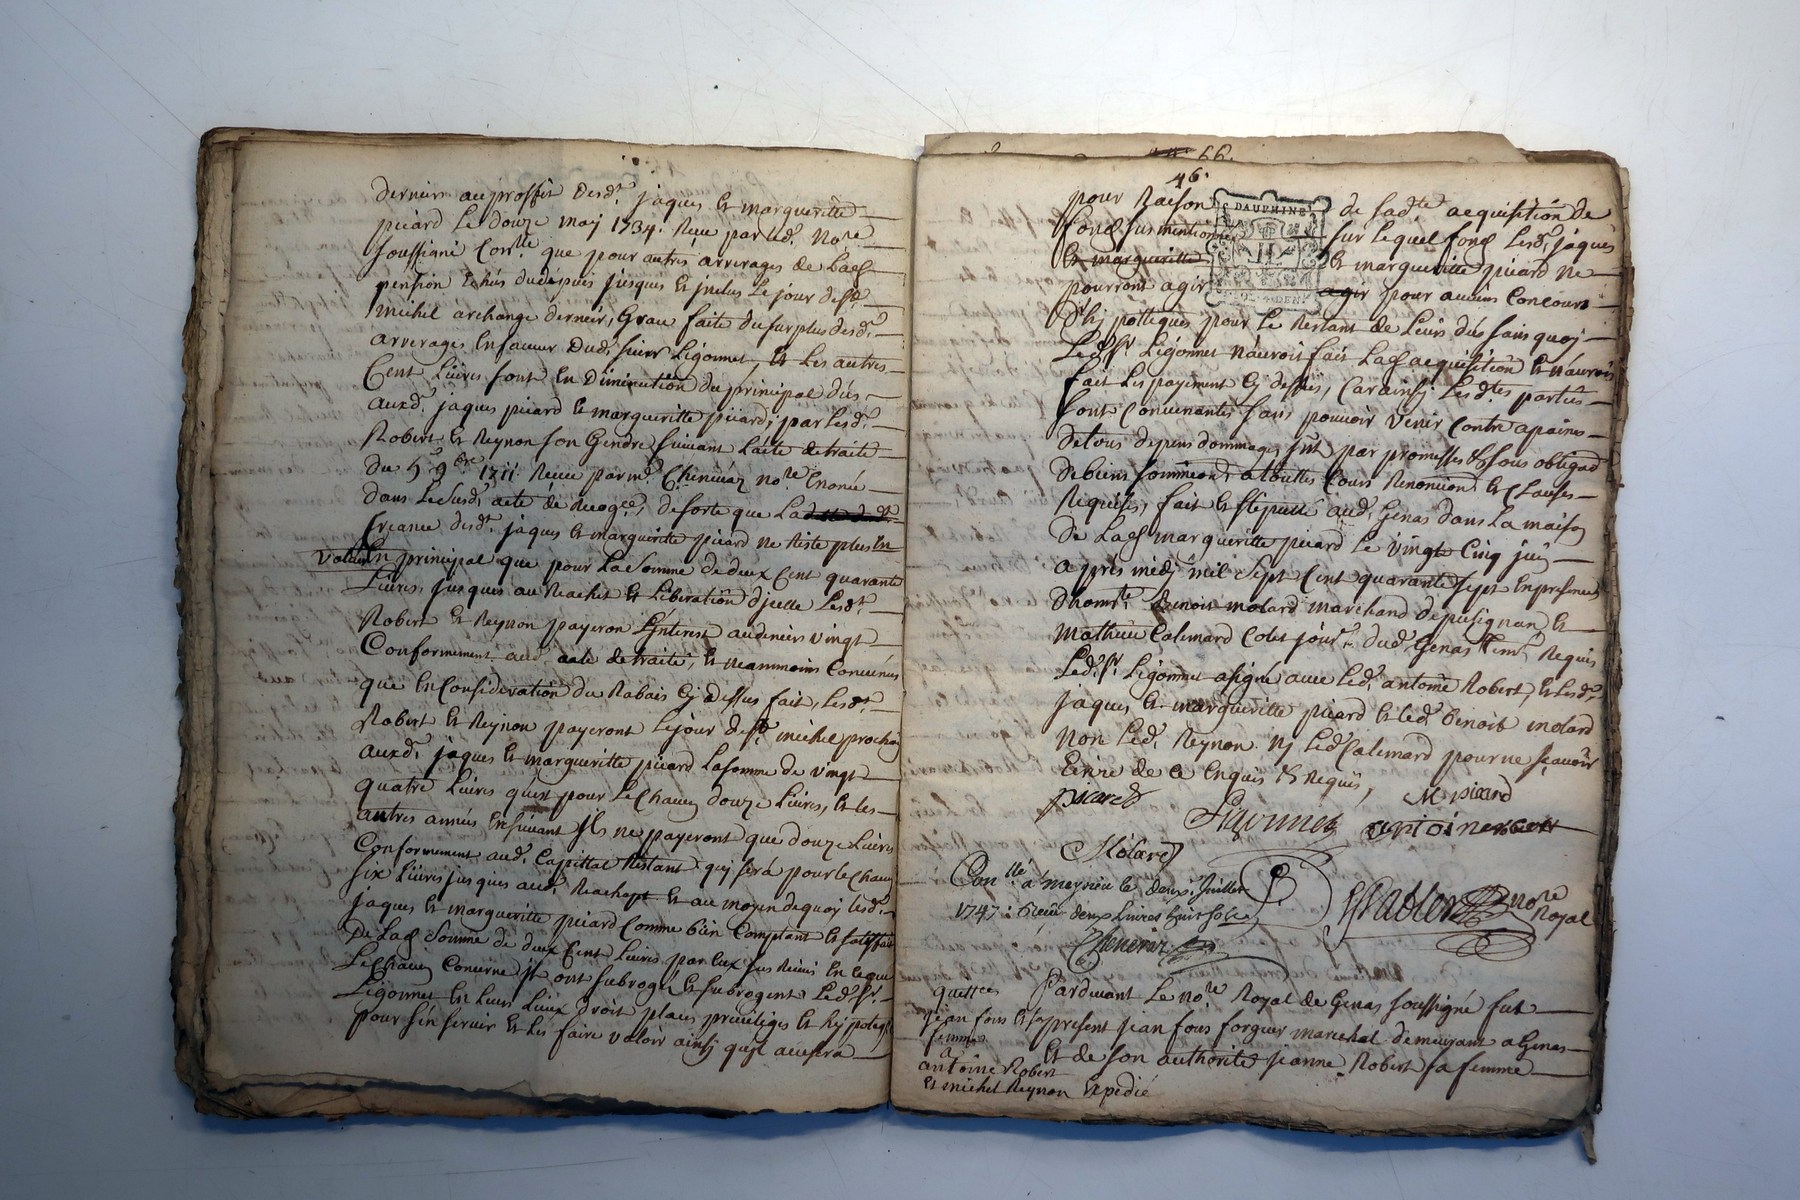 derniere au proffit desdt. jaques et margueritte
picard Le douze may 1734. Reçu par led. Nore
soussigné Conlle que pour autres arrerages de Lad
pension Echus du depuis jusques et inclus Le jour de st.
michel archange dernier, Grace faite du surplus desd.
arrerages En faveur Dud. sieur Ligonnet, et Les autres
Cent Livres sont En Diminution du principal dûs
auxd. jaques picard et margueritte picard, par Lesd.
Robert et Reynon son Gendre suivant L'acte de traité
du 5 9bre 1711. Reçu par me. Chenevaz nore Enoncé
dans Le susd. acte de de sorte que La
Creance desdt. jaques et margueritte picard ne Reste plus En
valeur En principal que pour La Somme de deux Cent quarante
Livres, jusques au Rachet et Liberation d'jcelle Lesdt.
Robert et Reynon payeron L'jnterest au denier vingt
Conformement aud. acte de traité, et neammoins Convenus
que En Consideration du Rabais cy dessus fait, Lesdt.
Robert et Reynon payeront Le jour de st. michel prochain
auxd. jaques et margueritte picard La somme de vingt
quatre Livres quest pour Le Chacun douze Livres, et les
autres années En suivant jls ne payeront que douze Livres
Conformement aud. Capittal Restant qui sera pour le Chacun
six Livres jusques aud. Rachept et au moyen de quoy lesd.
jaques et margueritte picard Comme bien Comptant et satisfaits
De Lad Somme de deux Cent Livres par Eux sus Reçus En ce que
Le Chacun Concerne jls ont subrogé et subrogent Led. sr.
Ligonnet En Leurs Lieux droit places privileges et hypoteques
pour s'en servir et les faire valoir ainsy qu'il avisera
66.
46.
pour Raison de sad.te acquisition de
fond sus mentionné sur Lequel fond Lesd. jaques
et margueritte et margueritte picard ne
pourront agir agir pour aucuns Concours
D'hypotteques pour Le Restant de Leurs dûs sans quoy
Led. Sr. Ligonnet n'auroit fait Lad acquisition et n'auroit
fait Les payement cy dessus, Car ainsy Lesd.tes parties
sont Convenantes sans pouvoir venir Contre a paines
De tous depens dommages jnt. par promesses et sous obligaõ
De biens soûmiõns a touttes Cours Renonciõn et Clauses
Requises, fait et stipullé aud. Genas dans La maison
De Lad margueritte picard Le vingt Cinq juin
apprés midy mil Sept Cent quarante sept En presence
D'honte. Benoit molard marchand de pusignan et
mathieu Calemard dud. Genas Temt. Requis
Led. Sr. Ligonnet a signé avec Led. antoine Robert, et Lesd.
jaques et margueritte picard et led. benoit molard
non Led. Reynon ny Led. Calemard pour ne sçavoir
Ecrire de ce Enquis et Requis,
picard M picard
Ligonnet antoine
Molard
Conllé a meyrieu le deux. juillet
1747: Reçu deux Livres huit sols
nore
Royal
Chenevaz
quittce
jean fous et sa
femme
a
antoine Robert
et michel Reynon Expedié
Pardevant Le nore Royal de Genas soussigné fut
present jean fous forgeur marechal demeurant a Genas
et de son authorité jeanne Robert sa femme
DAUPHINE